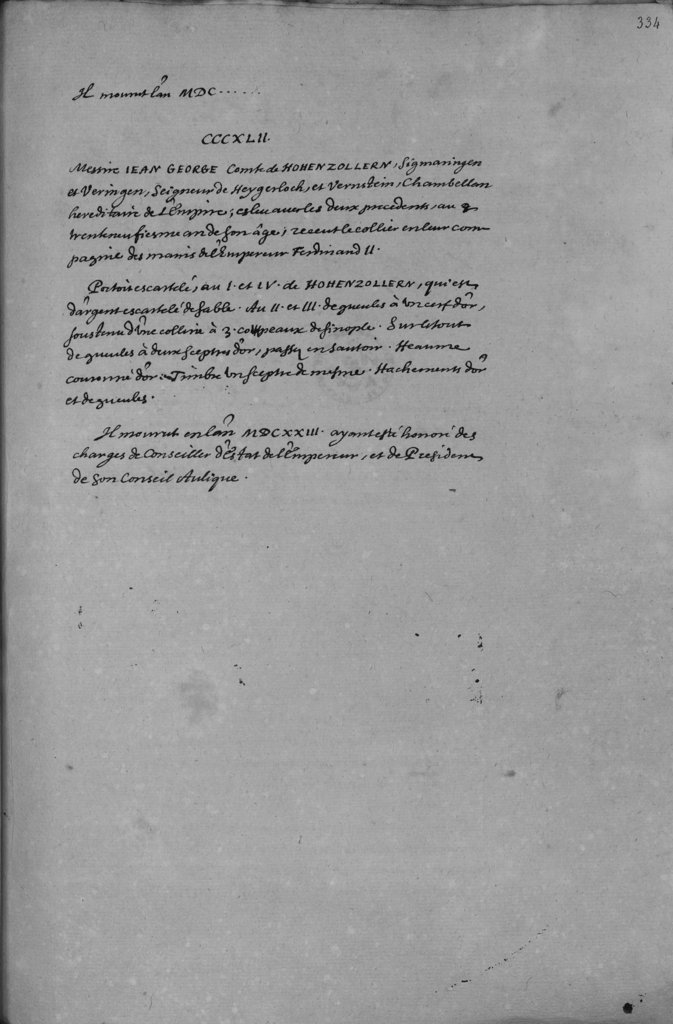 334
Il mourut l'an MDC......
CCCXLII.
Messire IEAN GEORGE Comte de HOHENZOLLERN, Sigmaringen
et Veringen, Seigneur de Heygerloch, et Vernstein, Chambellan
hereditaire de l'Empire; esleu avec les deux precedents, au
trentneufiesme an de son âge; receut le collier en leur com-
pagnie des mains de l'Empereur Ferdinand II.
Portoit escartelé, au I. et IV. de HOHENZOLLERN, qui est
d'argent escartelé de sable. Au II. et III. de gueules à un cerf d'or,
soustenu d'une colline à 3. couppeaux de sinople. Sur le tout
de gueules à deux sceptres d'or, passez en sautoir. Heaume
couronné d'or. Timbre un sceptre de mesme. Hachements d'or
et de gueules.
Il mourut en l'an MDCXXIII. ayant esté honoré des
charges de Conseiller d'Estat de l'Empereur, et de President
de son Conseil Aulique.